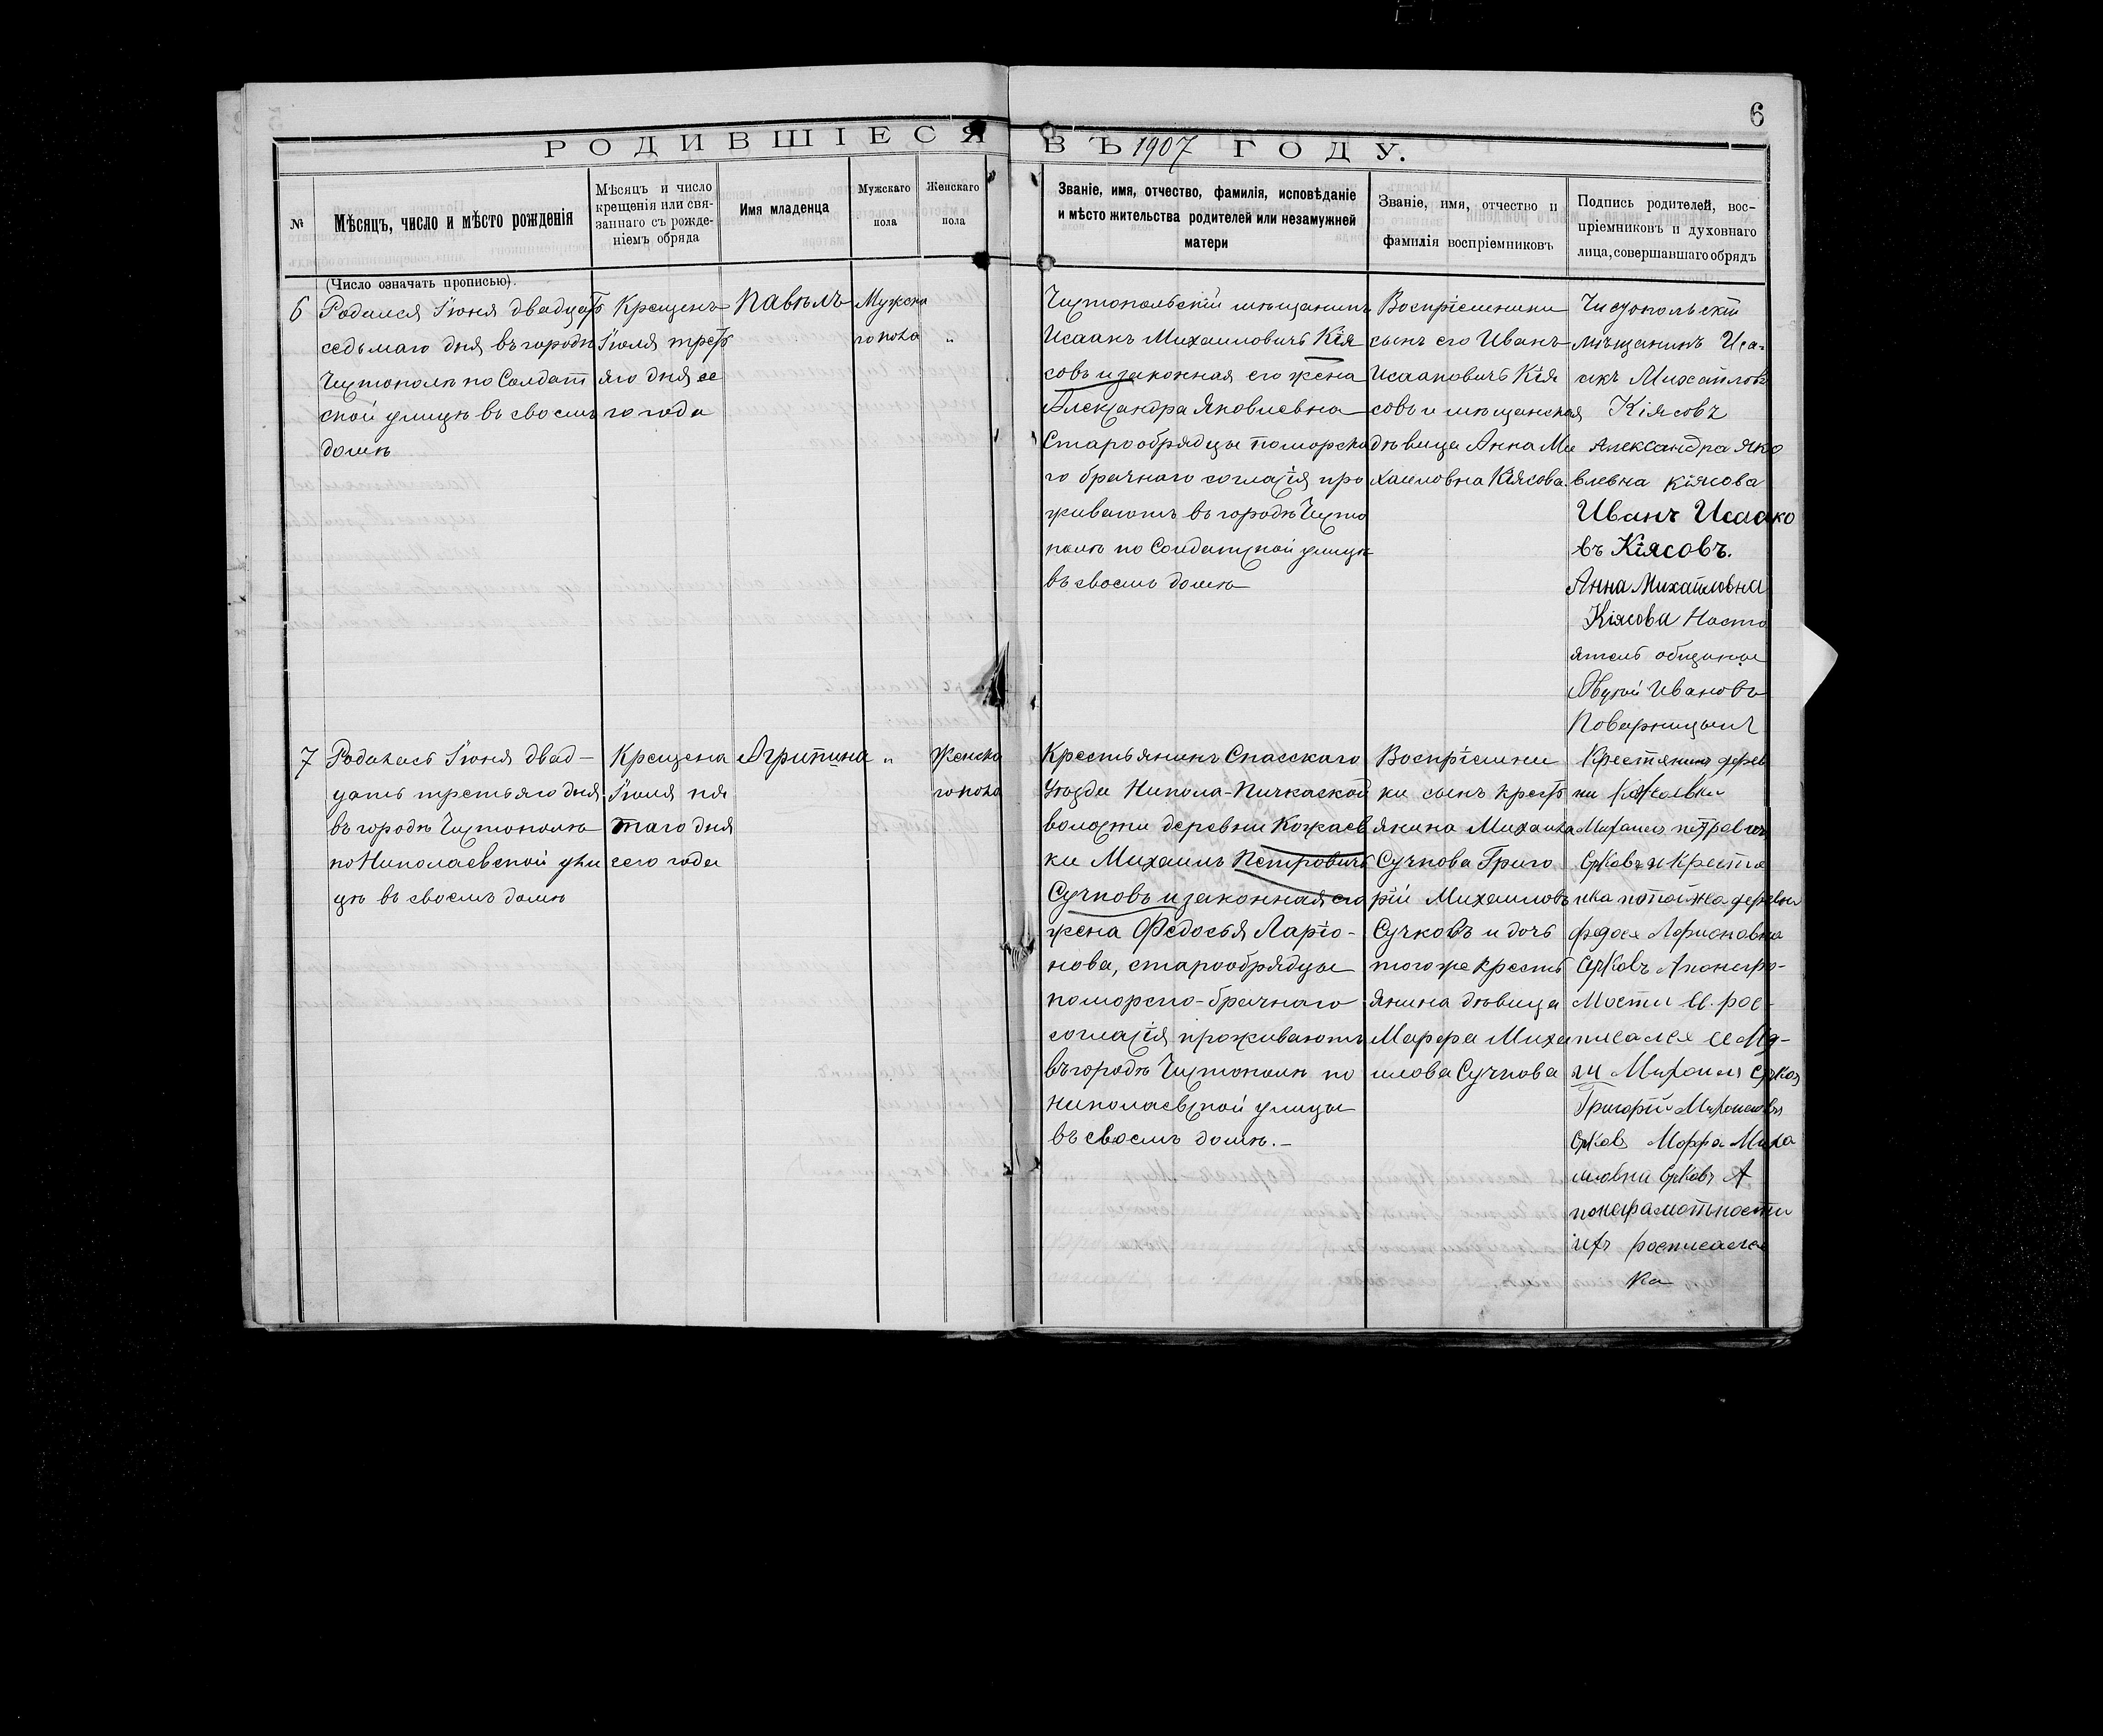 6
РОДИВШІЕСЯ ВЪ 1907 ГОДУ.
№
Мѣсяцъ, число и мѣсто рожденія
Мѣсяцъ и число
крещенія или свя-
заннаго съ рожде-
ніемъ обряда
Имя младенца
Мужскаго
пола
Женскаго
пола
Званіе, имя, отчество, фамилія, исповѣданіе
и мѣсто жительства родителей или незамужней
матери
Званіе, имя, отчество и
фамилія воспріемниковъ
Подпись родителей, вос-
пріемниковъ и духовнаго
лица, совершавшаго обрядъ
(Число означать прописью).
6
Родился Іюня двадцать
седьмаго дня въ городѣ
Чистополѣ по Солдат
ской улицѣ въ своемъ
домѣ
Крещенъ
Іюля треть
яго дня се
го года
Павѣлъ
Мужска
го пола
"
Чистопольскій мѣщанинъ
Исаакъ Михаиловичъ Кія
совъ и законная его жена
Александра Яковлевна
Старообрядцы поморска
го брачнаго согласія про
живаютъ въ городѣ Чисто
полѣ по Солдатской улицѣ
въ своемъ домѣ
Воспріемники
сынъ его Иванъ
Исааковичъ Кія
совъ и мѣщанская
дѣвица Анна Ми
хаиловна Кіясова.
Чистопольскій
мѣщанинъ Иса-
акъ Михайловъ
Кіясовъ
Александра Яко
влевна Кіясова
Иванъ Исаако
въ Кіясовъ.
Анна Михайловна
Кіясова Насто
ятель общины
Ивановъ
Поварницынъ
7
Родилась Іюня двад-
цать третьяго дня
въ городѣ Чистополѣ
по Николаевской ули
цѣ въ своемъ домѣ
Крещена
Іюля пя
таго дня
сего года
Агрипина
"
Женска
го пола
Крестьянинъ Спасскаго
Уѣзда Никола-Пичкаской
волости деревни Кожаев
ки Михаилъ Петровичъ
Сучковъ и законная его
жена Федосья Ларіо-
нова, старообрядцы
поморско-брачнаго
согласія проживаютъ
въ городѣ Чистополѣ по
Николаевской улицы
въ своемъ домѣ.-
Воспріемни
ки сынъ кресть
янина Михаила
Сучкова Григо
рій Михаиловъ
Сучковъ и дочь
того же кресть
янина дѣвица
Марфа Миха
илова Сучкова
Крестянинъ дерев
ни
Михаилъ петровичъ
федося Ларионовна
рос-
писался
Михаилъ
Григорій Михаиловъ
Марфа Миха
иловна А
по неграмотьности
ихъ росписался